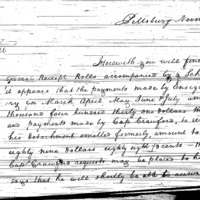 Pittsburg Novem
Herewith you will find
special Receipt Rolls accompanied by a Sch
it appears that the payments made by Ensign
ry in March April May June & July am
thousand four hundred thirty one dollars th
and payments made by Capt Crawford, to se
his detachment omitted formerly, amount to
eighty nine dollars eighty eight cents. Th
Capt Crawford requests may be placed to h
says that he will shortly be able to